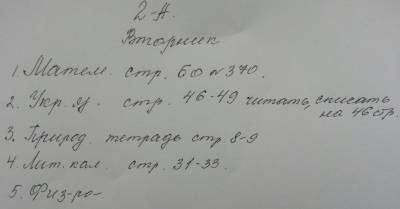 2-А.
Вторник
1. Матем. стр. 60 №370.
2. Укр. яз. стр. 46-49 читать, списать
на 46 стр.
3. Природ. тетрадь стр. 8-9
4. Лит. кал. стр. 31-33.
5. Физ-ра